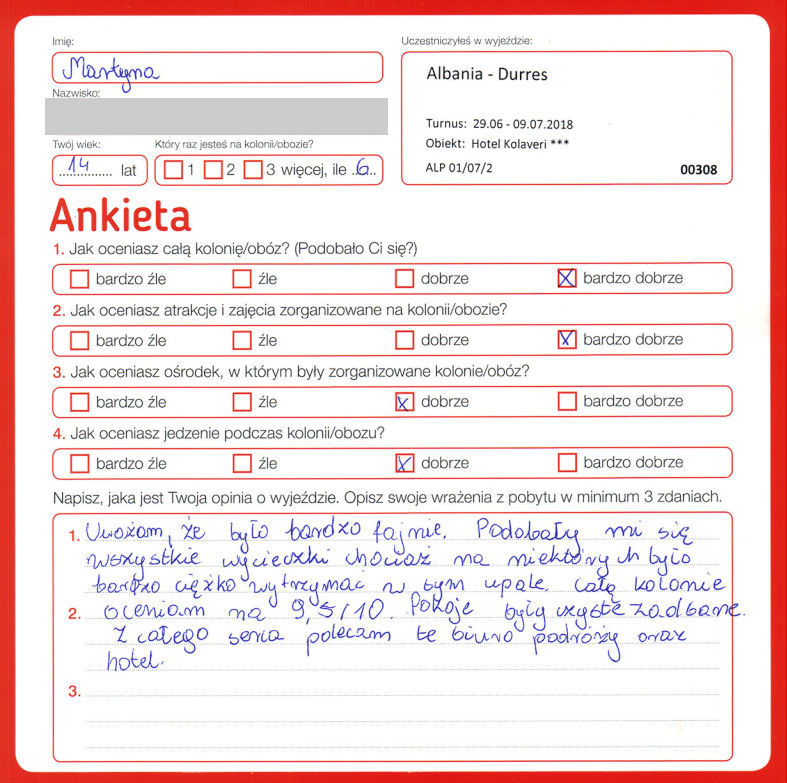 Imię:
Uczestniczyłeś w wyjeździe:
Martyna
Albania - Durres
Nazwisko:
Turnus: 29.06 - 09.07.2018
Obiekt: Hotel Kolaveri ***
ALP 01/07/2
00308
Twój wiek:
Który raz jesteś na kolonii/obozie?
14 lat
1 2 3 więcej, ile 6
Ankieta
1. Jak oceniasz całą kolonię/obóz? (Podobało Ci się?)
bardzo źle źle dobrze X bardzo dobrze
2. Jak oceniasz atrakcje i zajęcia zorganizowane na kolonii/obozie?
bardzo źle źle dobrze X bardzo dobrze
3. Jak oceniasz ośrodek, w którym były zorganizowane kolonie/obóz?
bardzo źle źle X dobrze bardzo dobrze
4. Jak oceniasz jedzenie podczas kolonii/obozu?
bardzo źle źle X dobrze bardzo dobrze
Napisz, jaka jest Twoja opinia o wyjeździe. Opisz swoje wrażenia z pobytu w minimum 3 zdaniach.
1. Uważam, że było bardzo fajnie. Podobały mi się
wszystkie wycieczki chociaż na niektórych było
bardzo ciężko wytrzymać w tym upale. całą kolonie
2. oceniam na 9,5/10. Pokoje były czyste zadbane.
Z całego serca polecam te biuro podróży oraz
hotel.
3.